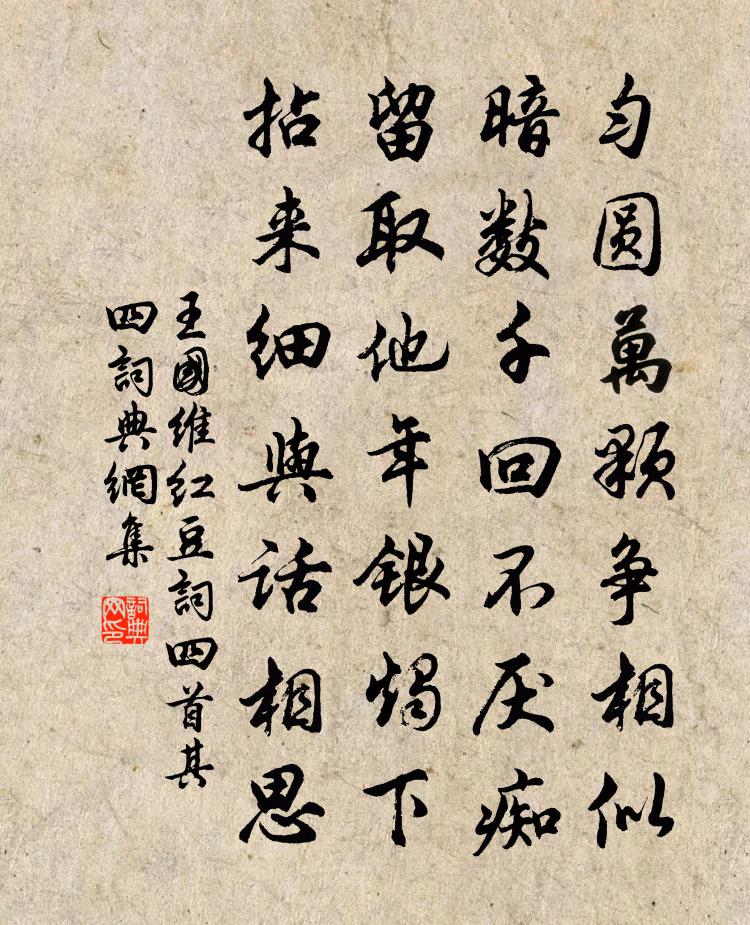 匀圆萬顆争相似
暗数千回不厌痴
留取他年银烛下
拈来细與话相思
王國维红豆詞四首其
四詞典網集
詞典
网印